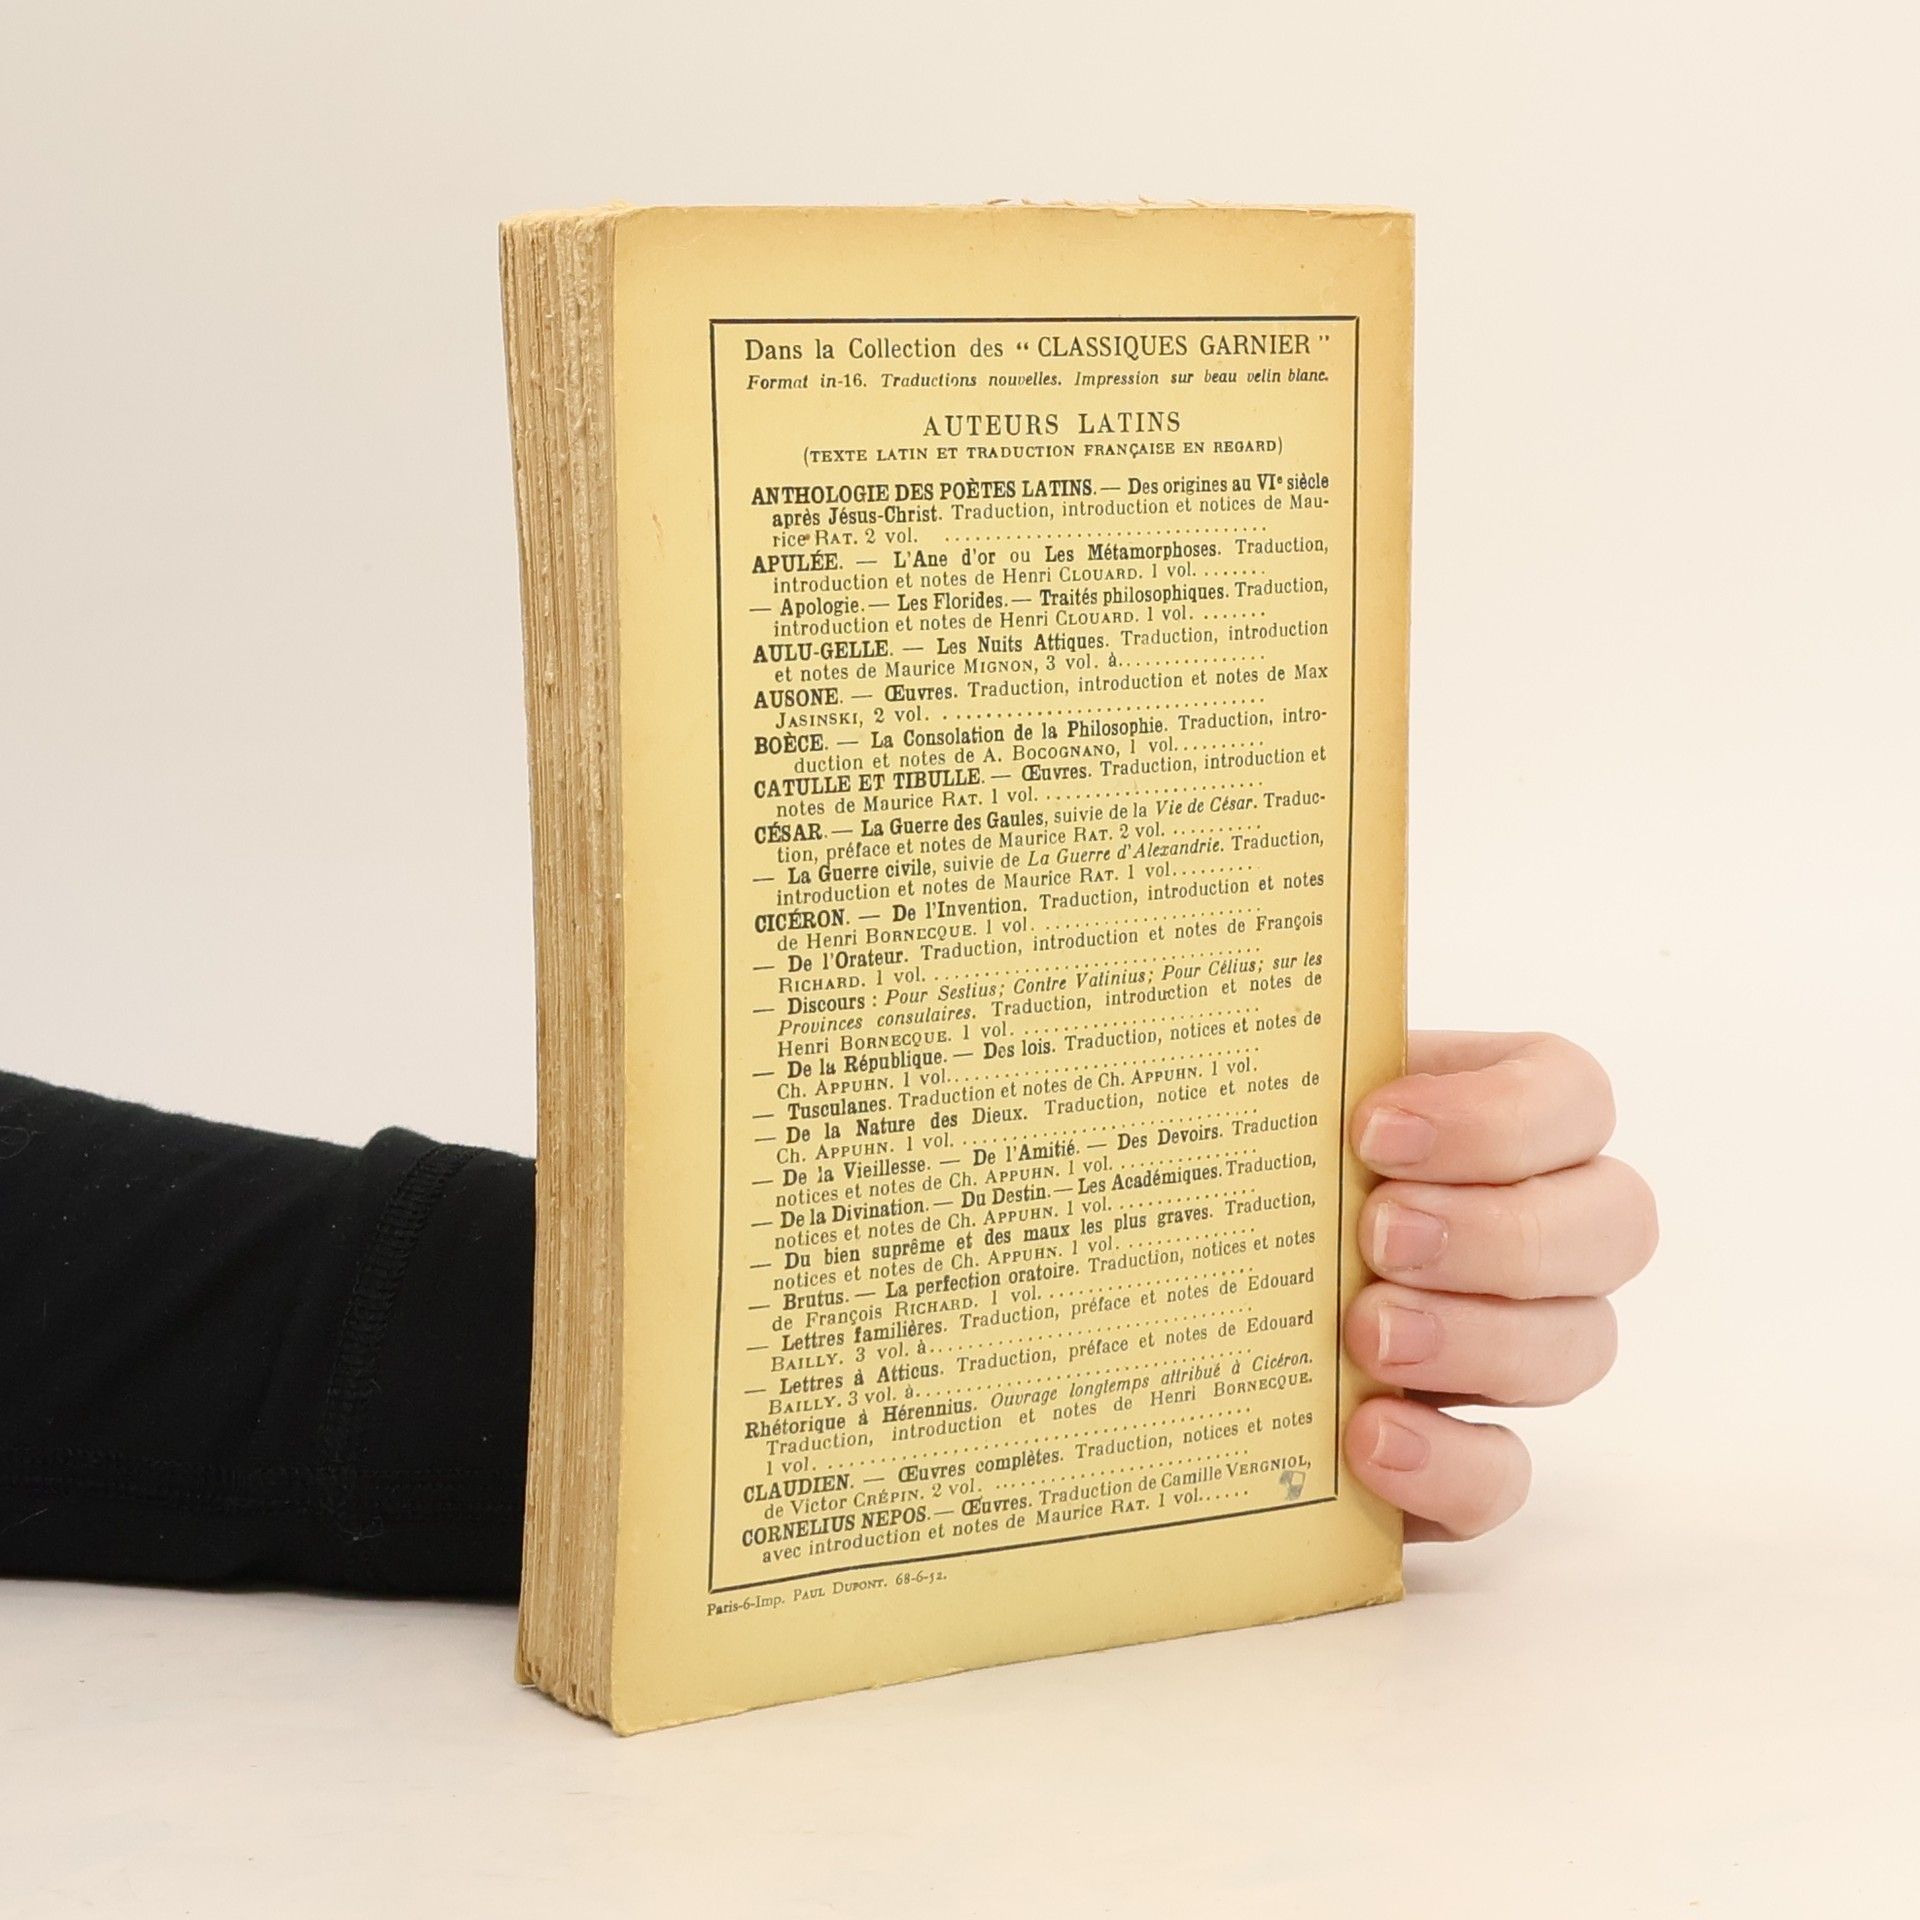 Dans la Collection des “ CLASSIQUES GARNIER ”
Format in-16. Traductions nouvelles. Impression sur beau velin blanc.
AUTEURS LATINS
(TEXTE LATIN ET TRADUCTION FRANÇAISE EN REGARD)
ANTHOLOGIE DES POÈTES LATINS. — Des origines au VIe siècle
après Jésus-Christ. Traduction, introduction et notices de Mau-
rice RAT. 2 vol. ..............................
APULÉE. — L'Ane d'or ou Les Métamorphoses. Traduction,
introduction et notes de Henri CLOUARD. 1 vol. .......
— Apologie. — Les Florides. — Traités philosophiques. Traduction,
introduction et notes de Henri CLOUARD. 1 vol. .......
AULU-GELLE. — Les Nuits Attiques. Traduction, introduction
et notes de Maurice MIGNON, 3 vol. à...............
AUSONE. — Œuvres. Traduction, introduction et notes de Max
JASINSKI, 2 vol. ..............................
BOÈCE. — La Consolation de la Philosophie. Traduction, intro-
duction et notes de A. BOCOGNANO, 1 vol..........
CATULLE ET TIBULLE. — Œuvres. Traduction, introduction et
notes de Maurice RAT. 1 vol. ....................
CÉSAR. — La Guerre des Gaules, suivie de la Vie de César. Traduc-
tion, préface et notes de Maurice RAT. 2 vol. ..........
— La Guerre civile, suivie de La Guerre d'Alexandrie. Traduction,
introduction et notes de Maurice RAT. 1 vol.........
CICÉRON. — De l'Invention. Traduction, introduction et notes
de Henri BORNECQUE. 1 vol. ....................
— De l'Orateur. Traduction, introduction et notes de François
RICHARD. 1 vol. ..............................
— Discours : Pour Sestius; Contre Vatinius; Pour Célius; sur les
Provinces consulaires. Traduction, introduction et notes de
Henri BORNECQUE. 1 vol. ......................
— De la République. — Des lois. Traduction, notices et notes de
Ch. APPUHN. 1 vol..............................
— Tusculanes. Traduction et notes de Ch. APPUHN. 1 vol.
— De la Nature des Dieux. Traduction, notice et notes de
Ch. APPUHN. 1 vol. ............................
— De la Vieillesse. — De l'Amitié. — Des Devoirs. Traduction
notices et notes de Ch. APPUHN. 1 vol. .............
— De la Divination. — Du Destin. — Les Académiques. Traduction,
notices et notes de Ch. APPUHN. 1 vol. .............
— Du bien suprême et des maux les plus graves. Traduction,
notices et notes de Ch. APPUHN. 1 vol. .............
— Brutus. — La perfection oratoire. Traduction, notices et notes
de François RICHARD. 1 vol.......................
— Lettres familières. Traduction, préface et notes de Edouard
BAILLY. 3 vol. à..............................
— Lettres à Atticus. Traduction, préface et notes de Edouard
BAILLY. 3 vol. à..............................
Rhétorique à Hérennius. Ouvrage longtemps attribué à Cicéron.
Traduction, introduction et notes de Henri BORNECQUE.
1 vol. ........................................
CLAUDIEN. — Œuvres complètes. Traduction, notices et notes
de Victor CRÉPIN. 2 vol. ........................
CORNELIUS NEPOS. — Œuvres. Traduction de Camille VERGNIOL,
avec introduction et notes de Maurice RAT. 1 vol......
Paris-6-Imp. PAUL DUPONT. 68-6-52.